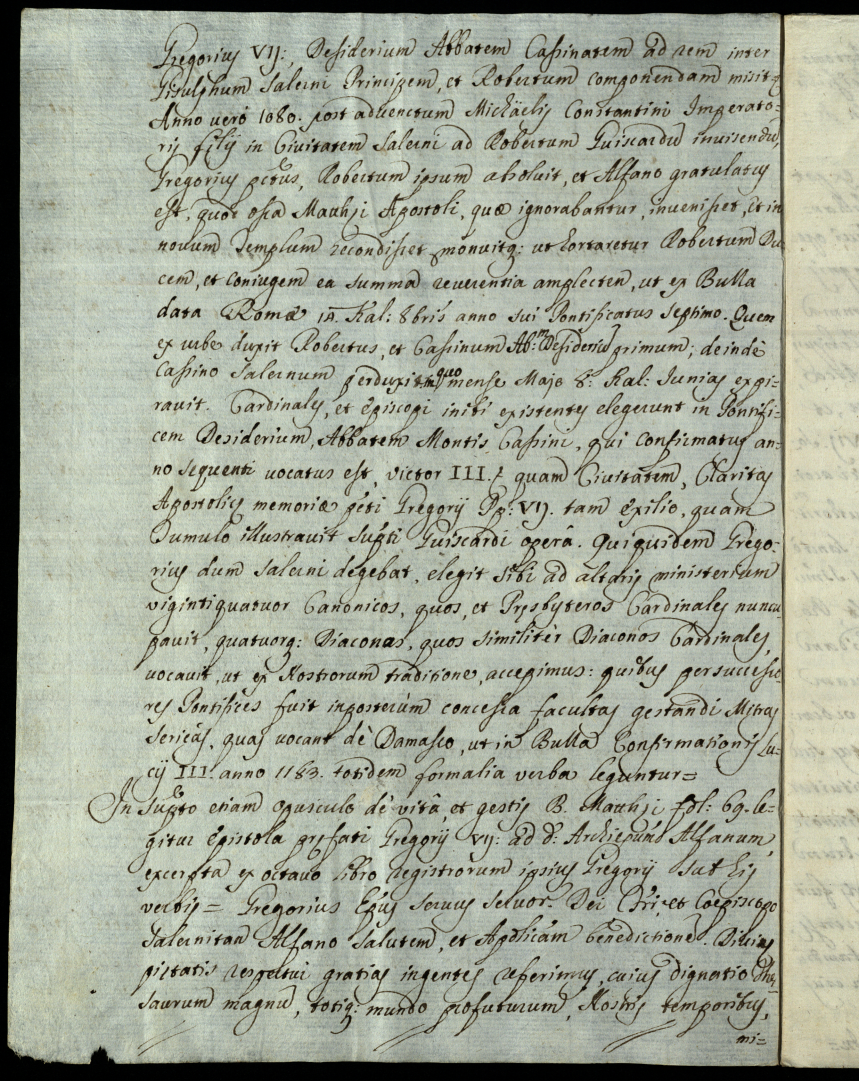 Gregorius VIJ:, Desiderium Abbatem Cassinatem ad rem inter
Gisulphum Salerni Principem, et Robertum componendam misit
Anno verò 1080. post adventum Michäelis Constantini Imperato=
ris filij in Civitatem Salerni ad Robertum Guiscardū invisendū,
Gregorius pctus, Robertum ipsum absoluit, et Alfano gratulatus
est, quod ossa Matthęi Apostoli, quæ ignorabantur, invenisset, et in
novum Templum recondisset monuitq: ut hortaretur Robertum Du=
cem, et coniugem ea summa reverentia amplecten, ut ex Bulla
data Romæ 14 Kal: 8bris anno sui Pontificatus septimo. Quem
ex urbe duxit Robertus, et Cassinum Ab:m Desideriū primum; deinde
Cassino Salernum perduxit quo mense Majo 8: Kal: Junias expi=
ravit. Cardinales, et Episcopi inibi existentes elegerunt in Pontifi=
cem Desiderium, Abbatem Montis Cassini, qui confirmatus an=
no sequenti vocatus est, victor III. quam Civitatem, Claritas
Apostolicę memoriæ pcti Gregorij Pp: VIJ. tam exilio, quam
Tumulo illustravit supti Guiscardi operâ. Qui quidem Grego=
rius dum Salerni degebat, elegit sibi ad altaris ministerium
vigintiquatuor Canonicos, quos, et Presbyteros Cardinales nuncu=
pavit, quatuorq: Diaconas, quos similitèr Diaconos Cardinales,
vocavit, ut ex Nostrorum traditione, accepimus: quibus per successo=
res Pontifices fuit inposterùm concessa facultas gestandi Mitras
sericas, quas vocant dè Damasco, ut in Bulla Confirmationis Lu=
cij III. anno 1183. totidem formalia verba leguntur=
In supto etiam opusculo dè vitâ, et gestis B. Matthęi fol: 69. le=
gitur Epistola prefati Gregorij VIJ: ad d: Archiepum Alfanum,
excerpta ex octavo libro registrorum ipsius Gregorij sub his
verbis= Gregorius Epūs servus servor. Dei Chri et Coepiscopo
Salernitan Alfano salutem, et Aplicam benedictionē. Divinę
pietatis respectui gratias ingentes referimus, cuius dignatio The=
saurum magnū, totiq: mundo profuturum, Nostris temporibus,
mi=